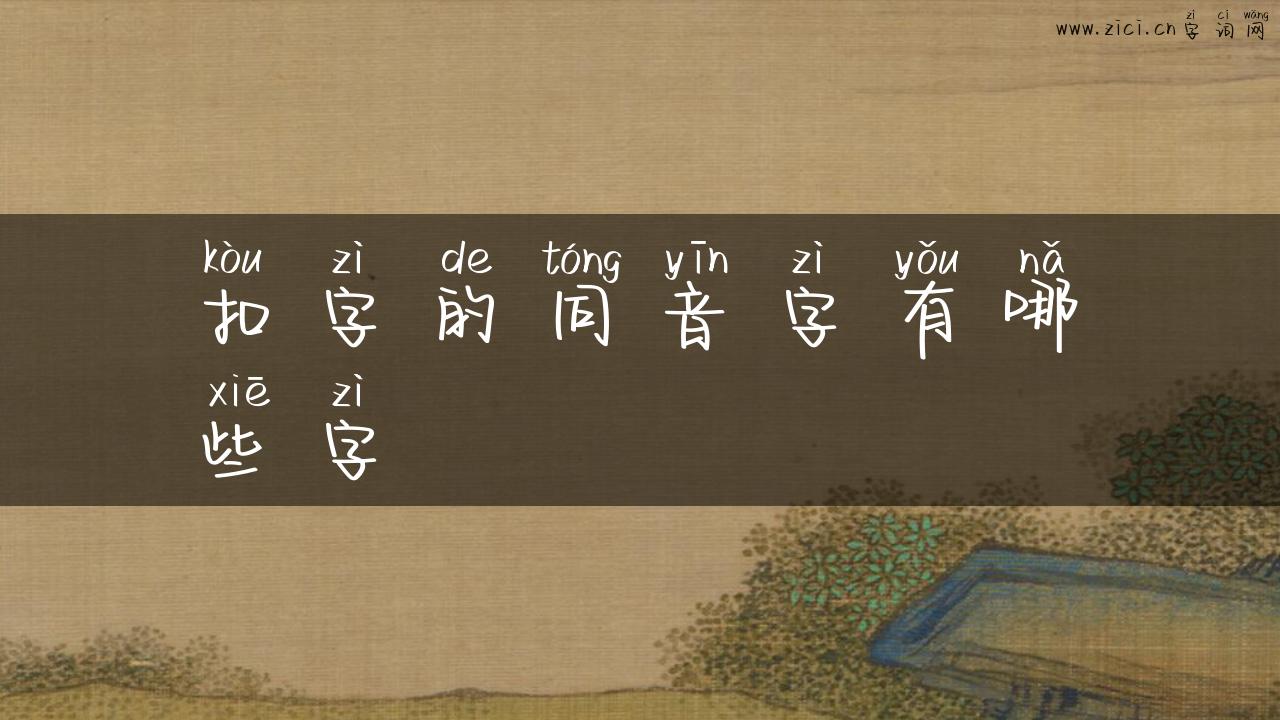 zì cí wǎng
www.zici.cn 字词网
kòu zì de tóng yīn zì yǒu nǎ
扣字的同音字有哪
xiē zì
些字